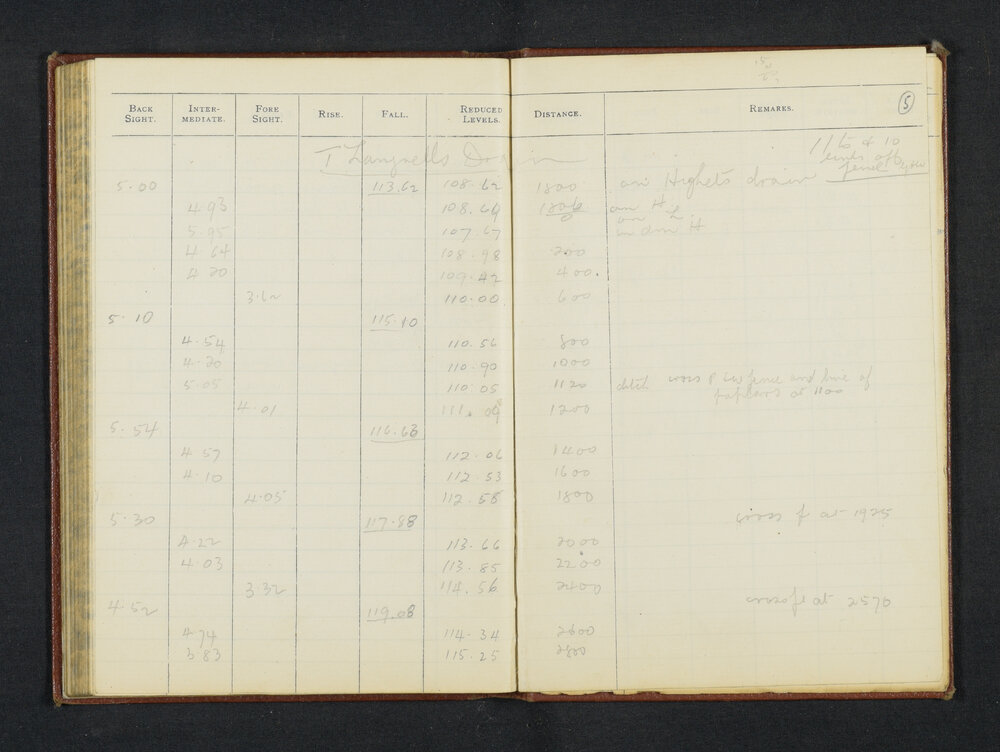 BACK SIGHT. INTER-MEDIATE. FORE SIGHT. RISE. FALL. REDUCED LEVELS. DISTANCE. REMARKS. 5
T Langnells Drain
11 to & 10
fence
5.00 113.62 108.62 1800 on Highets drain
4.93 108.69 1806 on H
5.95 107.67 0 in drn H
4.64 108.98 200
4.20 109.42 400.
3.62 110.00 600
5.10 115.10
4.54 110.56 800
4.20 110.90 1000
5.05 110.05 1120 ditch cross fence and line of
at 1100
4.01 111.09 1200
5.54 116.63
4.57 112.06 1400
4.10 112.53 1600
4.05 112.58 1800
5.30 117.88 cross f at 1925
4.22 113.66 2000
4.03 113.85 2200
3.32 114.56 2400
4.52 119.08 cross f at 2570
4.74 114.34 2600
3.83 115.25 2800